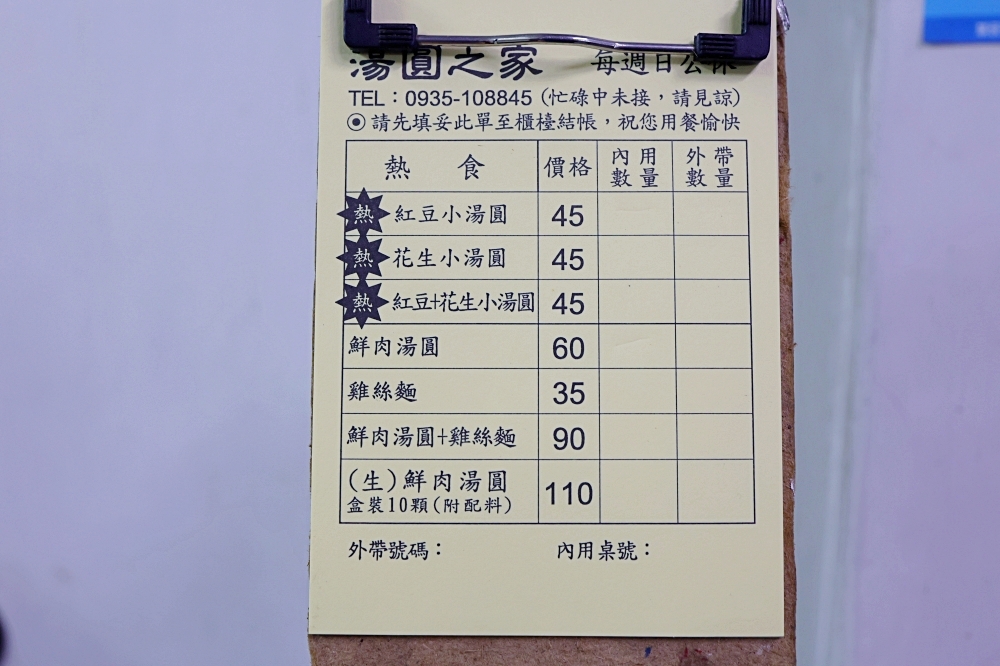 湯圓之家 每週日公休
TEL：0935-108845 (忙碌中未接，請見諒)
◉請先填妥此單至櫃檯結帳，祝您用餐愉快
熱 食 價格 內用數量 外帶數量
熱 紅豆小湯圓 45
熱 花生小湯圓 45
熱 紅豆+花生小湯圓 45
鮮肉湯圓 60
雞絲麵 35
鮮肉湯圓+雞絲麵 90
(生)鮮肉湯圓 110
盒裝10顆(附配料)
外帶號碼： 內用桌號：